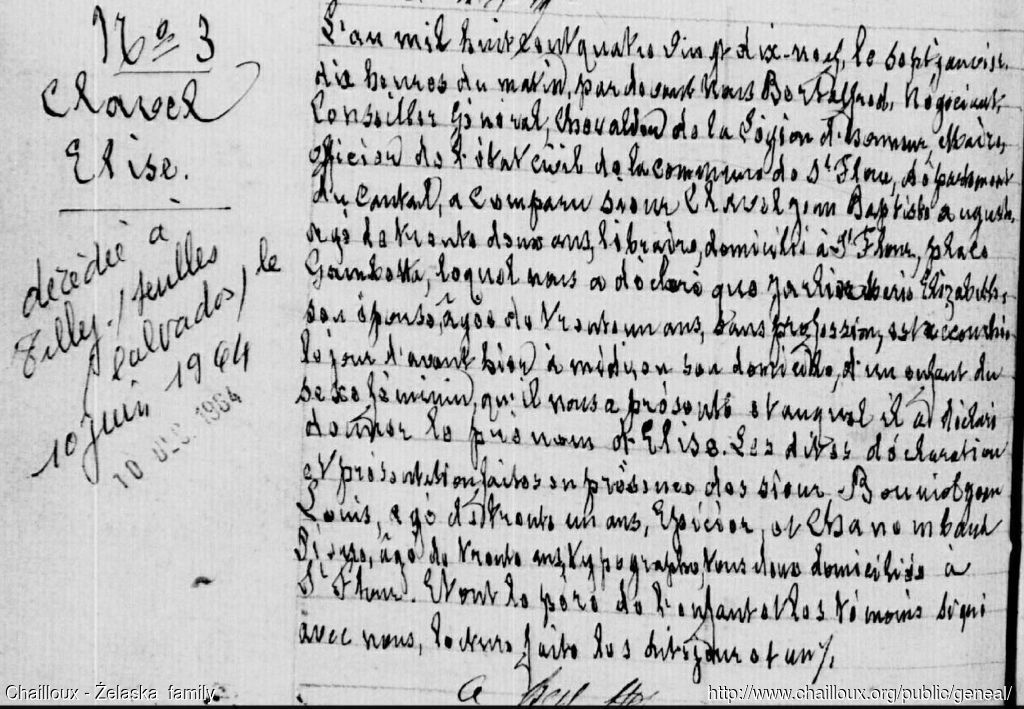 No 3
Clavel
Elise.
décédée à
Tilly s/ seulles
Calvados, le
10 juin 1964
10 DEC. 1964
L'an mil huit cent quatre vingt dix-neuf, le sept janvier
dix heures du matin, par devant Nous Bert Négociant
Conseiller Général, Chevalier de la Légion d'honneur, Maire,
officier de l'état civil de la commune de St Flour, département
du Cantal, a comparu sieur Clavel Jean Baptiste auguste,
agé de trente deux ans, libraire, domicilié à St Flour, place
Gambetta, lequel nous a déclaré que Marie Elizabeth,
son épouse, âgée de trente un ans, sans profession, est accouchée
le jour d'avant hier à midi, en son domicile, d'un enfant du
sexe féminin, qu'il nous a présenté et auquel il a déclaré
donner le prénom d'Elise. Les dites déclaration
et présentation faites en présence des sieur Jean
Louis, agé de trente un ans, Epicier, et
âgé de trente ans, typographe, tous deux domiciliés à
St Flour. Et ont le père de l'enfant et les témoins signé
avec nous, lecture faite les dits jour et an %.
Chailloux - Żelaska family
http://www.chailloux.org/public/geneal/